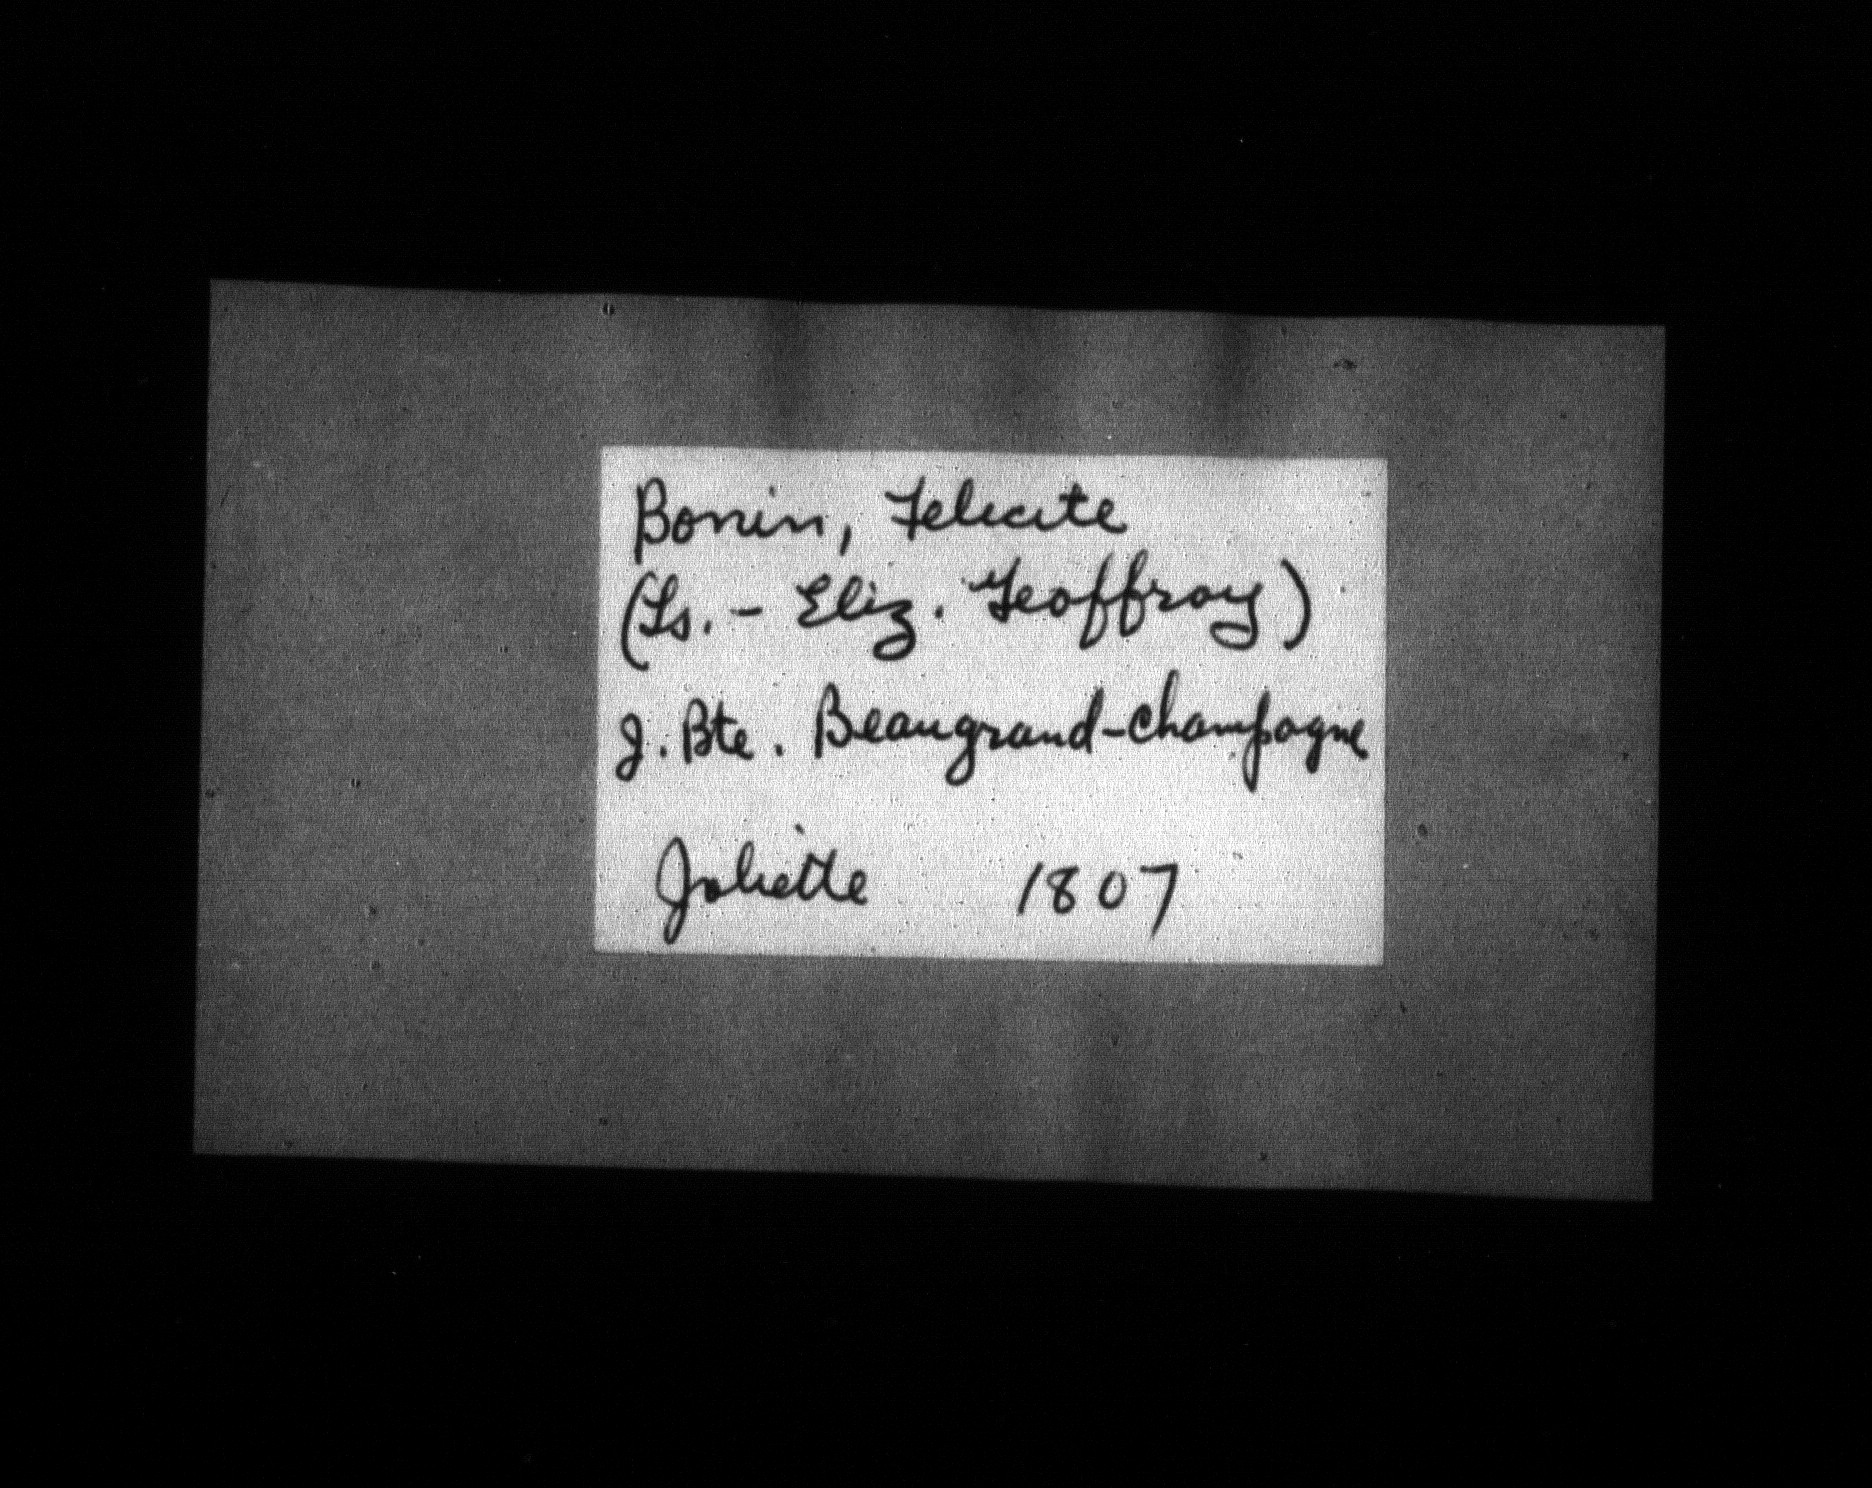 Bonin, Felicite
(Ls. - Eliz. Geoffroy)
J. Bte. Beaugrand-Champagne
Joliette 1807